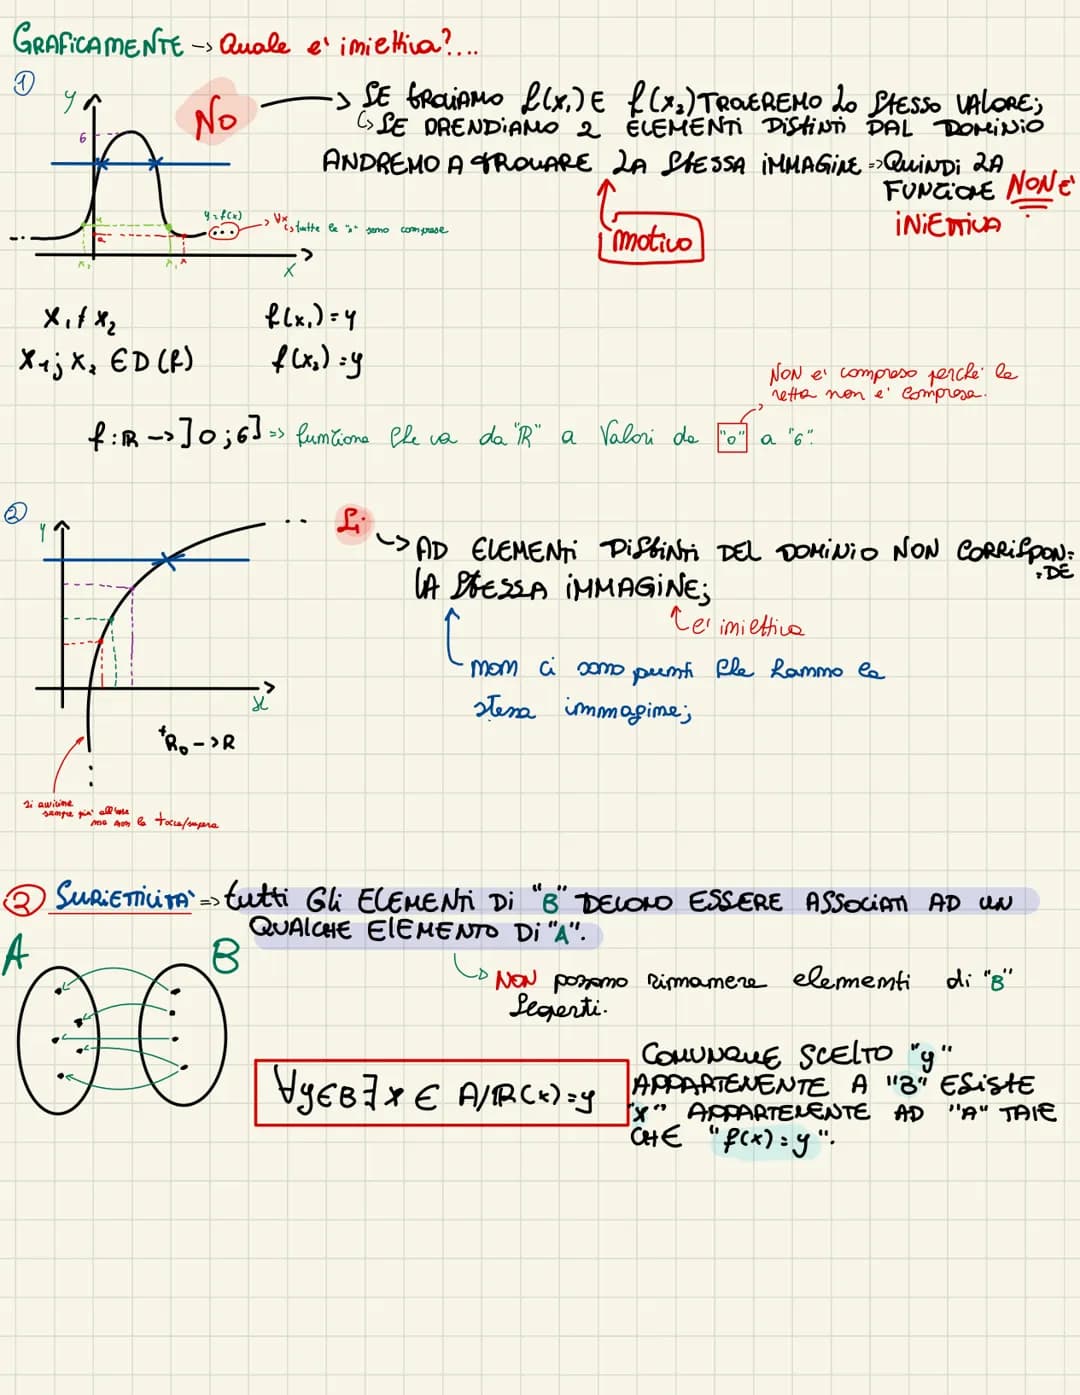 GRAFICAMENTE -> Quale e' iniettiva?...
①
y
6
No
-> SE TROVIAMO f(x₁) E f(x₂) TROVEREMO LO STESSO VALORE;
↳ SE PRENDIAMO 2 ELEMENTI DISTINTI DAL DOMINIO
ANDREMO A TROVARE LA STESSA IMMAGINE => QUINDI LA
FUNZIONE NON E'
INIETTIVA
motivo
y=f(x)
∀x
↳ tutte le "x" sono comprese
x
x₁ ≠ x₂
f(x₁)=y
x₁; x₂ ∈ D(f)
f(x₂)=y
NON e' compreso perche' la
retta non e' compresa.
f: R -> ]0;6] => funzione che va da "R" a Valori da "0" a "6".
②
y
Si
-> AD ELEMENTI DISTINTI DEL DOMINIO NON CORRISPON-
-DE
LA STESSA IMMAGINE;
e' iniettiva
non ci sono punti che hanno la
stessa immagine;
x
⁺R₀ -> R
Si avvicina
sempre piu' all'asse
ma non lo tocca/supera
② SURIETTIVITA' => tutti Gli ELEMENTI Di "B" DEVONO ESSERE ASSOCIATI AD UN
QUALCHE ELEMENTO Di "A".
A
B
↳ NON possono rimanere elementi di "B"
scoperti.
∀y∈B ∃ x ∈ A/R(x)=y
COMUNQUE SCELTO "y"
APPARTENENTE A "B" ESISTE
"x" APPARTENENTE AD "A" TALE
CHE "f(x)=y".